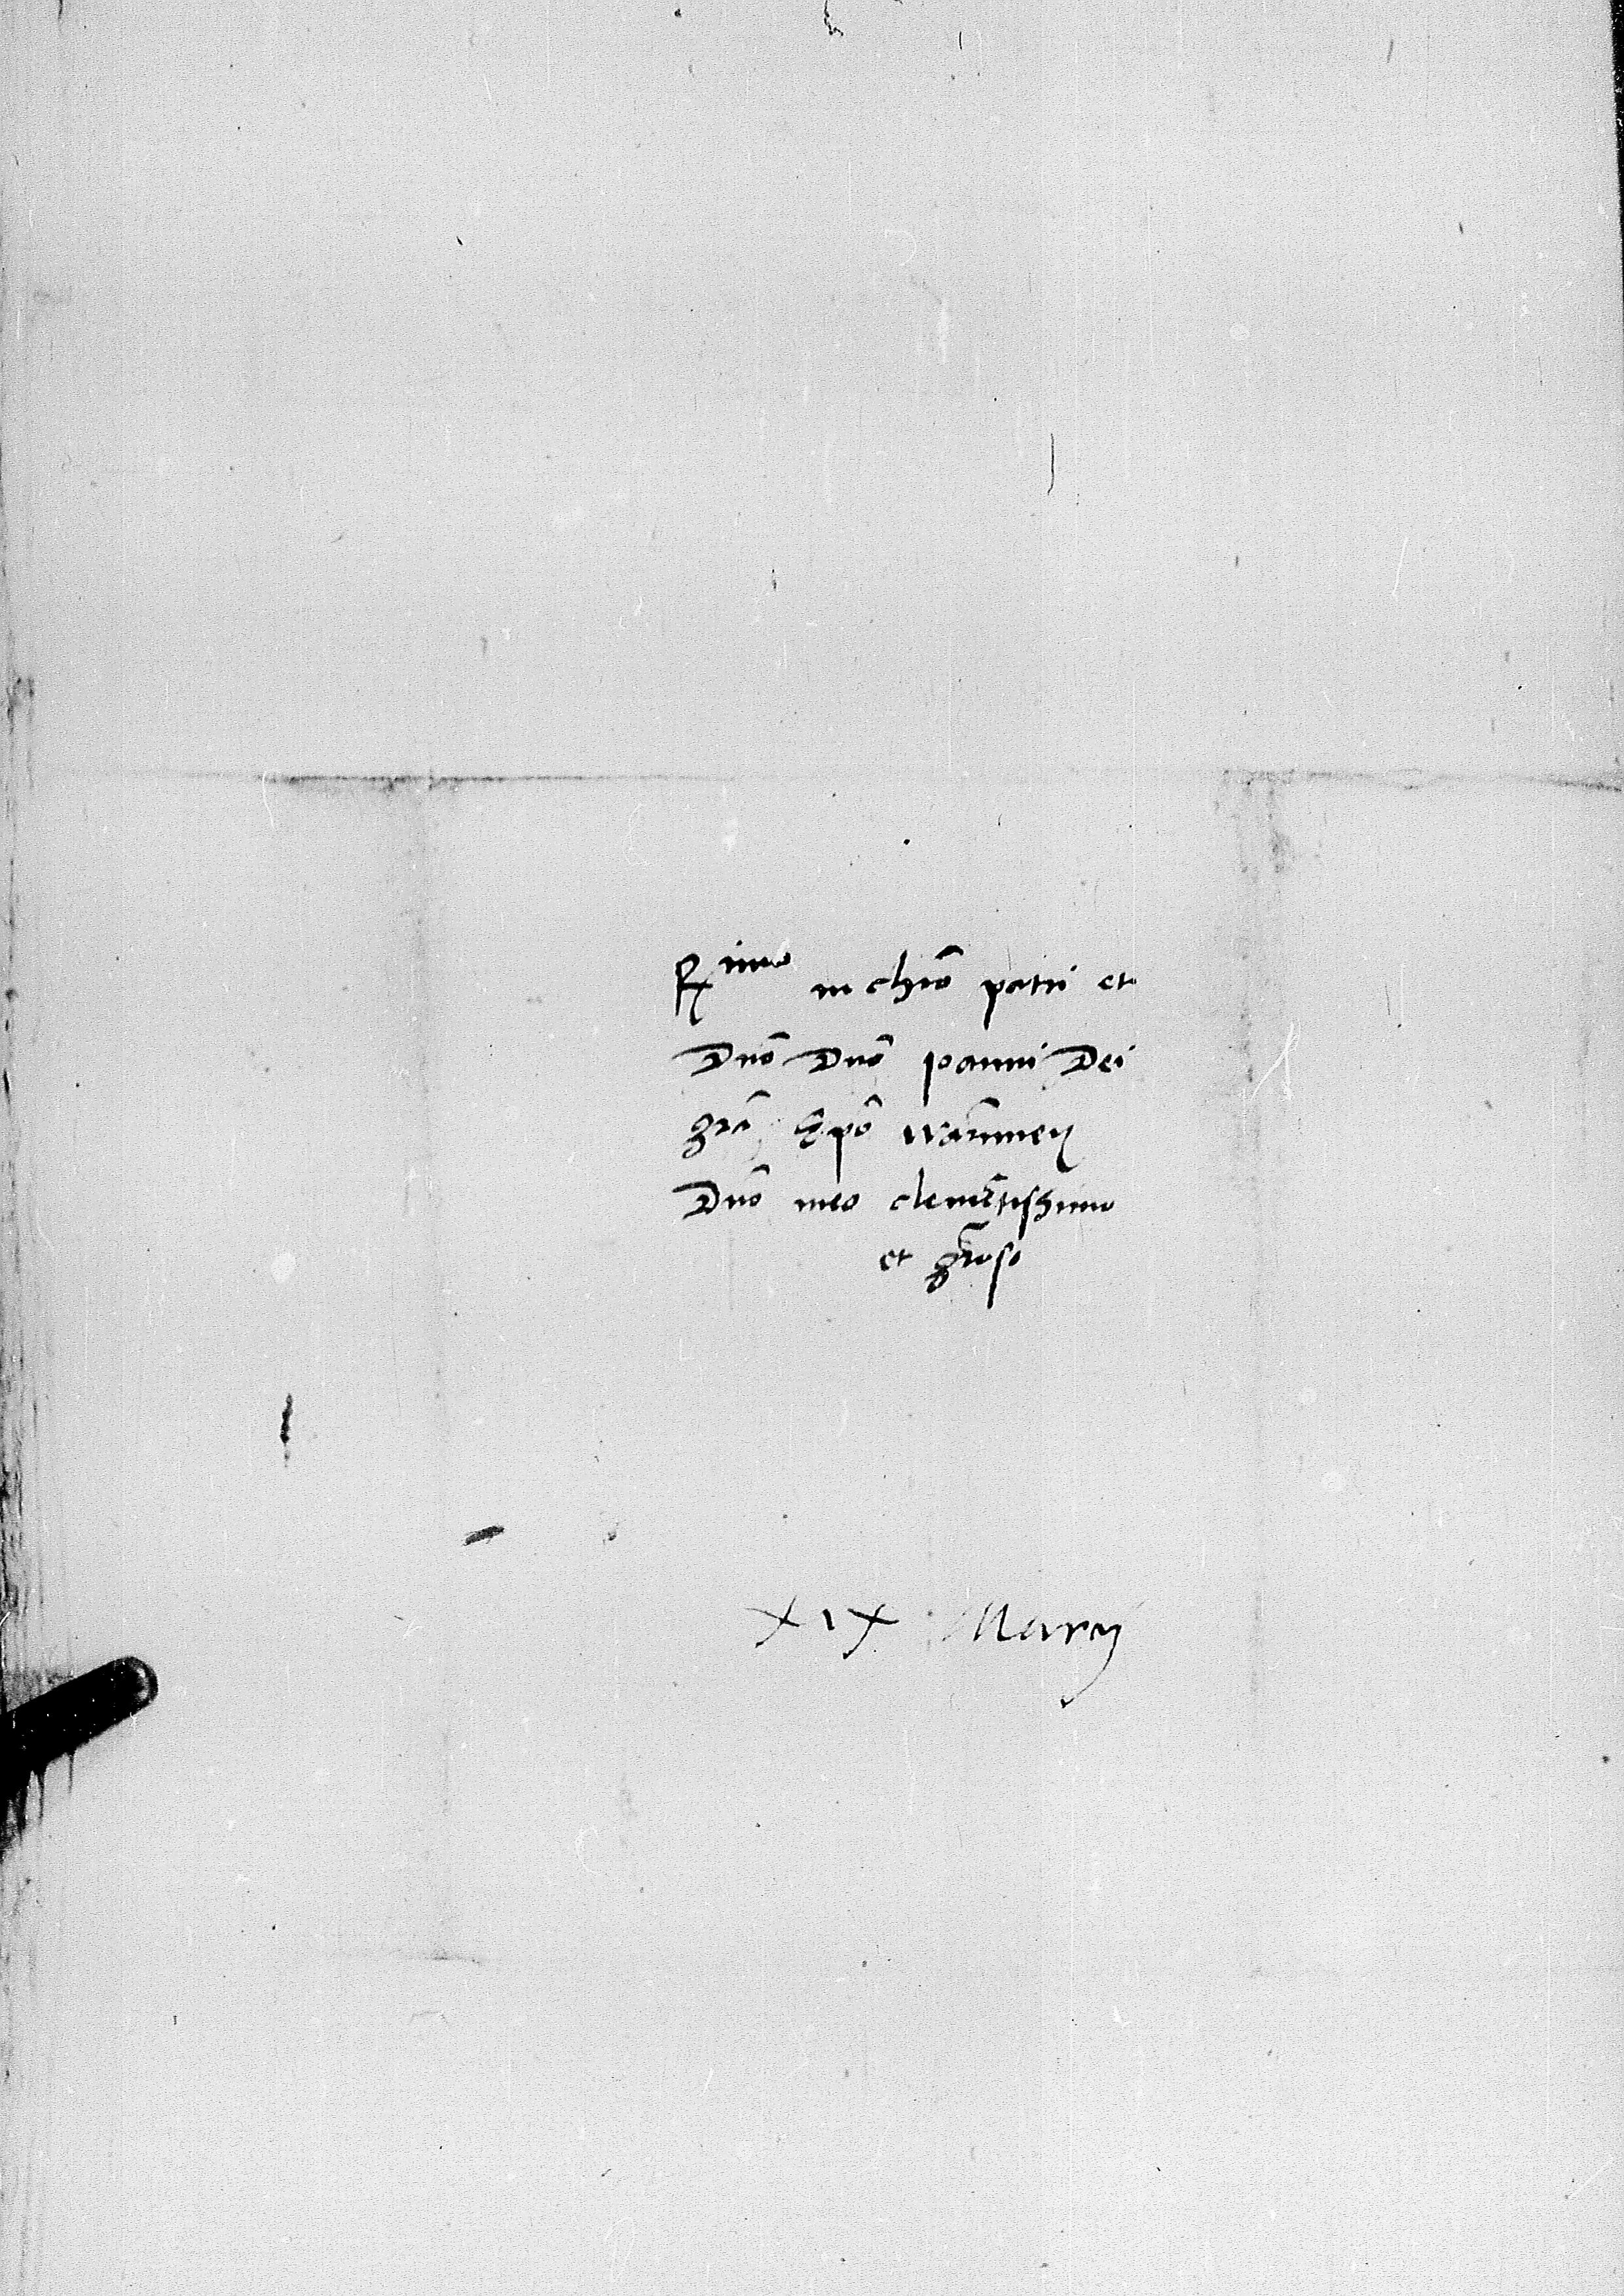 R^imo in chr̄o patri et
Dn̄o Dn̄o Joanni Dei
gr̄a Ep̄o warmieñ
Dn̄o meo clemētissimo
et gr̄oso
XIX Marcij